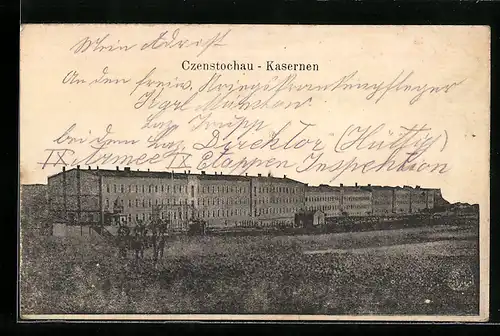 Mein Adresst
Czenstochau - Kasernen
An den freiw. Kriegskrankenpfleger
Karl
Laz. Trupp
bei dem Laz. Direktor
IX Armee IX Etappen Inspektion